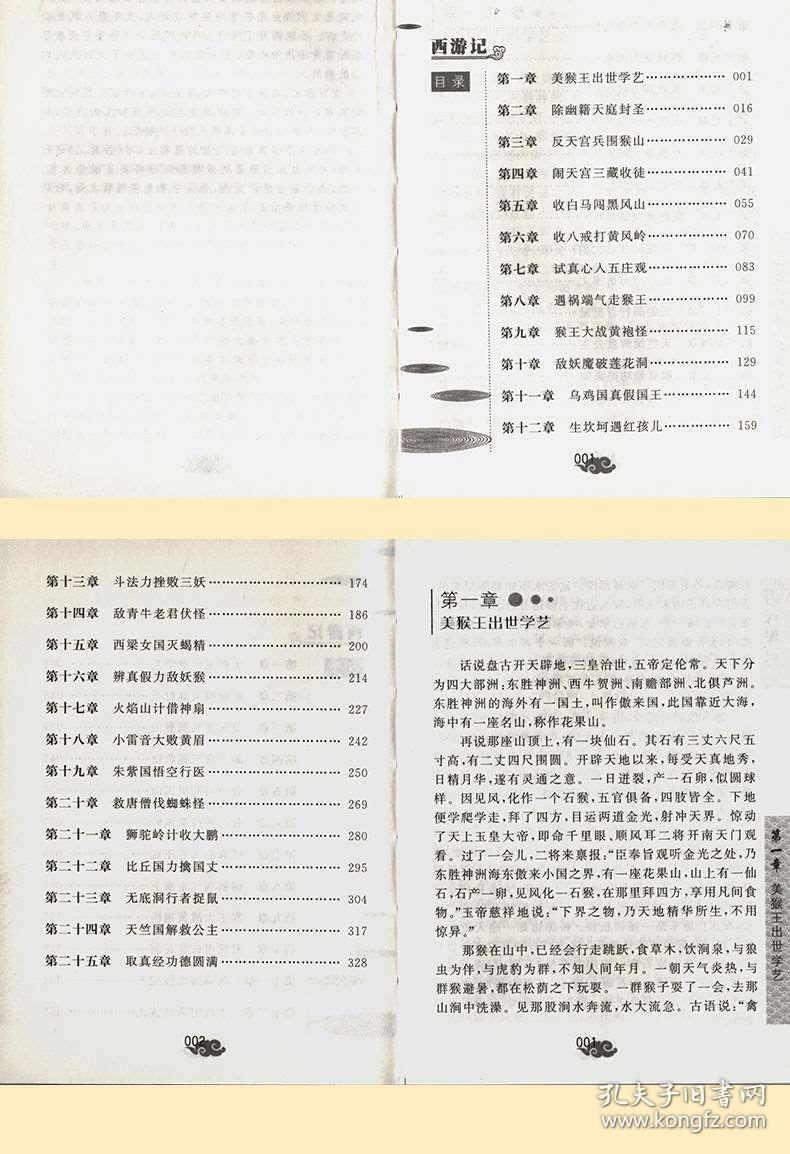 西游记
目录
第一章 美猴王出世学艺………………001
第二章 除幽籍天庭封圣………………016
第三章 反天宫兵围猴山………………029
第四章 闹天宫三藏收徒………………041
第五章 收白马闯黑风山………………055
第六章 收八戒打黄风岭………………070
第七章 试真心人五庄观………………083
第八章 遇祸端气走猴王………………099
第九章 猴王大战黄袍怪………………115
第十章 敌妖魔破莲花洞………………129
第十一章 乌鸡国真假国王……………144
第十二章 生坎坷遇红孩儿……………159
001
第十三章 斗法力挫败三妖…………………………174
第十四章 敌青牛老君伏怪…………………………186
第十五章 西梁女国灭蝎精…………………………200
第十六章 辨真假力敌妖猴…………………………214
第十七章 火焰山计借神扇…………………………227
第十八章 小雷音大败黄眉…………………………242
第十九章 朱紫国悟空行医…………………………250
第二十章 救唐僧伐蜘蛛怪…………………………269
第二十一章 狮驼岭计收大鹏………………………280
第二十二章 比丘国力擒国丈………………………295
第二十三章 无底洞行者捉鼠………………………304
第二十四章 天竺国解救公主………………………317
第二十五章 取真经功德圆满………………………328
002
第一章
美猴王出世学艺
话说盘古开天辟地，三皇治世，五帝定伦常。天下分
为四大部洲：东胜神洲、西牛贺洲、南赡部洲、北俱芦洲。
东胜神洲的海外有一国土，叫作傲来国，此国靠近大海，
海中有一座名山，称作花果山。
再说那座山顶上，有一块仙石。其石有三丈六尺五
寸高，有二丈四尺围圆。开辟天地以来，每受天真地秀，
日精月华，遂有灵通之意。一日迸裂，产一石卵，似圆球
样。因见风，化作一个石猴，五官俱备，四肢皆全。下地
便学爬学走，拜了四方，目运两道金光，射冲天界。惊动
了天上玉皇大帝，即命千里眼、顺风耳二将开南天门观
看。过了一会儿，二将来禀报：“臣奉旨观听金光之处，乃
东胜神洲海东傲来小国之界，有一座花果山，山上有一仙
石，石产一卵，见风化一石猴，在那里拜四方，享用凡间食
物。”玉帝慈祥地说：“下界之物，乃天地精华所生，不用
惊异。”
那猴在山中，已经会行走跳跃，食草木，饮涧泉，与狼
虫为伴，与虎豹为群，不知人间年月。一朝天气炎热，与
群猴避暑，都在松荫之下玩耍。一群猴子耍了一会，去那
山涧中洗澡。见那股涧水奔流，水大流急。古语说：“禽
第一章 美猴王出世学艺
001
孔夫子旧书网
www.kongfz.com